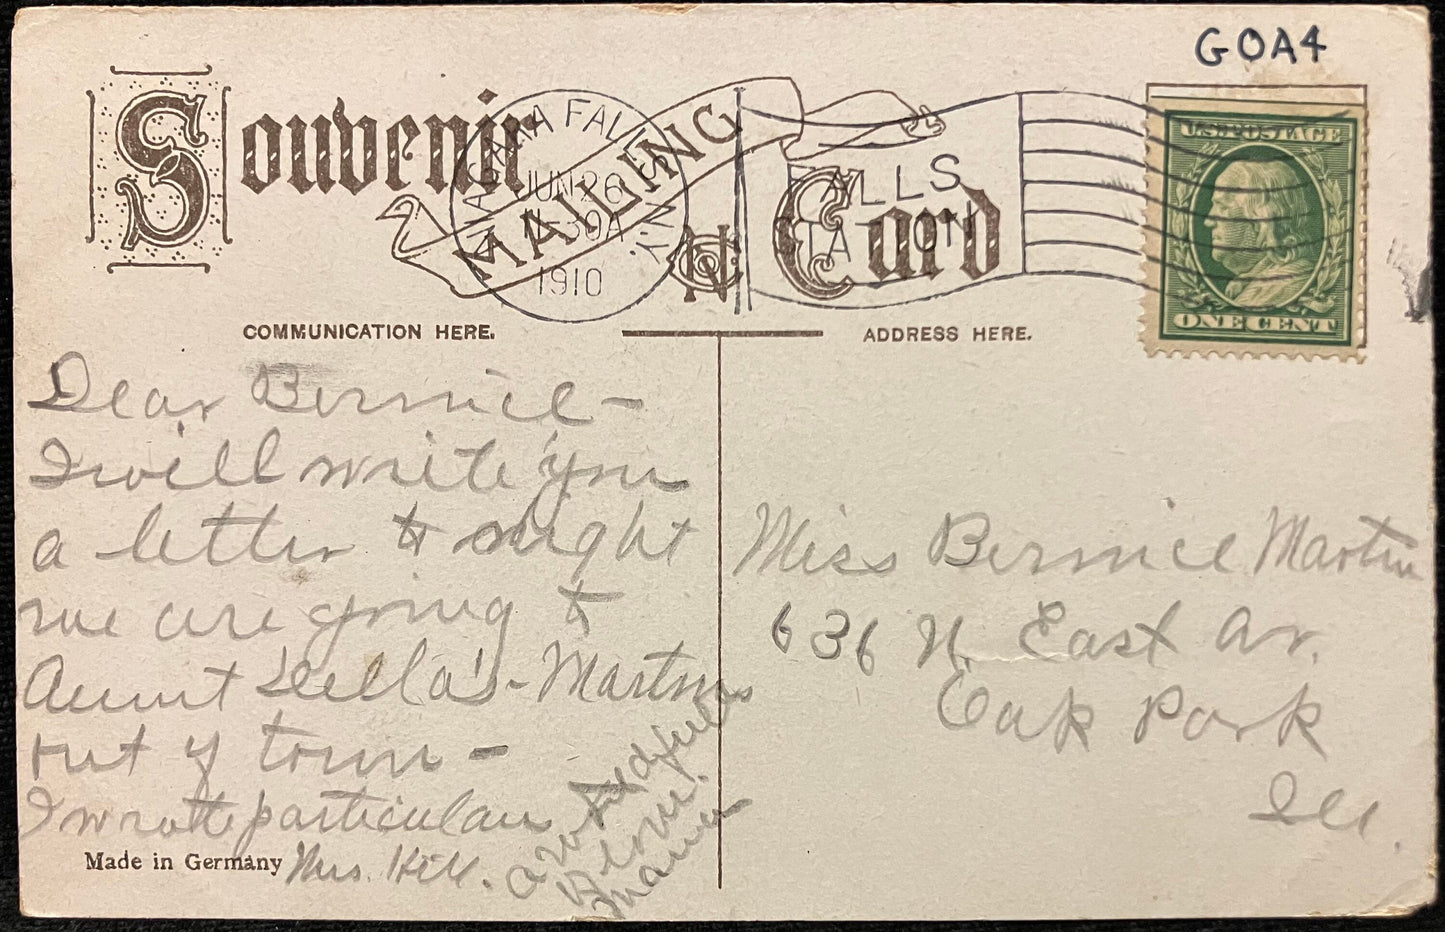 GOA4
Souvenir MAILING Card
NIAGARA FALLS, N.Y.
JUN 26
1910
FALLS
STATION
U.S. POSTAGE
ONE CENT
COMMUNICATION HERE.
ADDRESS HERE.
Dear Bernice –
I will write you
a letter to night
we are going to
Aunt Della's – Martins
out of town –
I wrote particulars
Mrs. Hill.
love.
Mama
Made in Germany
Miss Bernice Martin
636 N. East Av.
Oak Park
Ill.